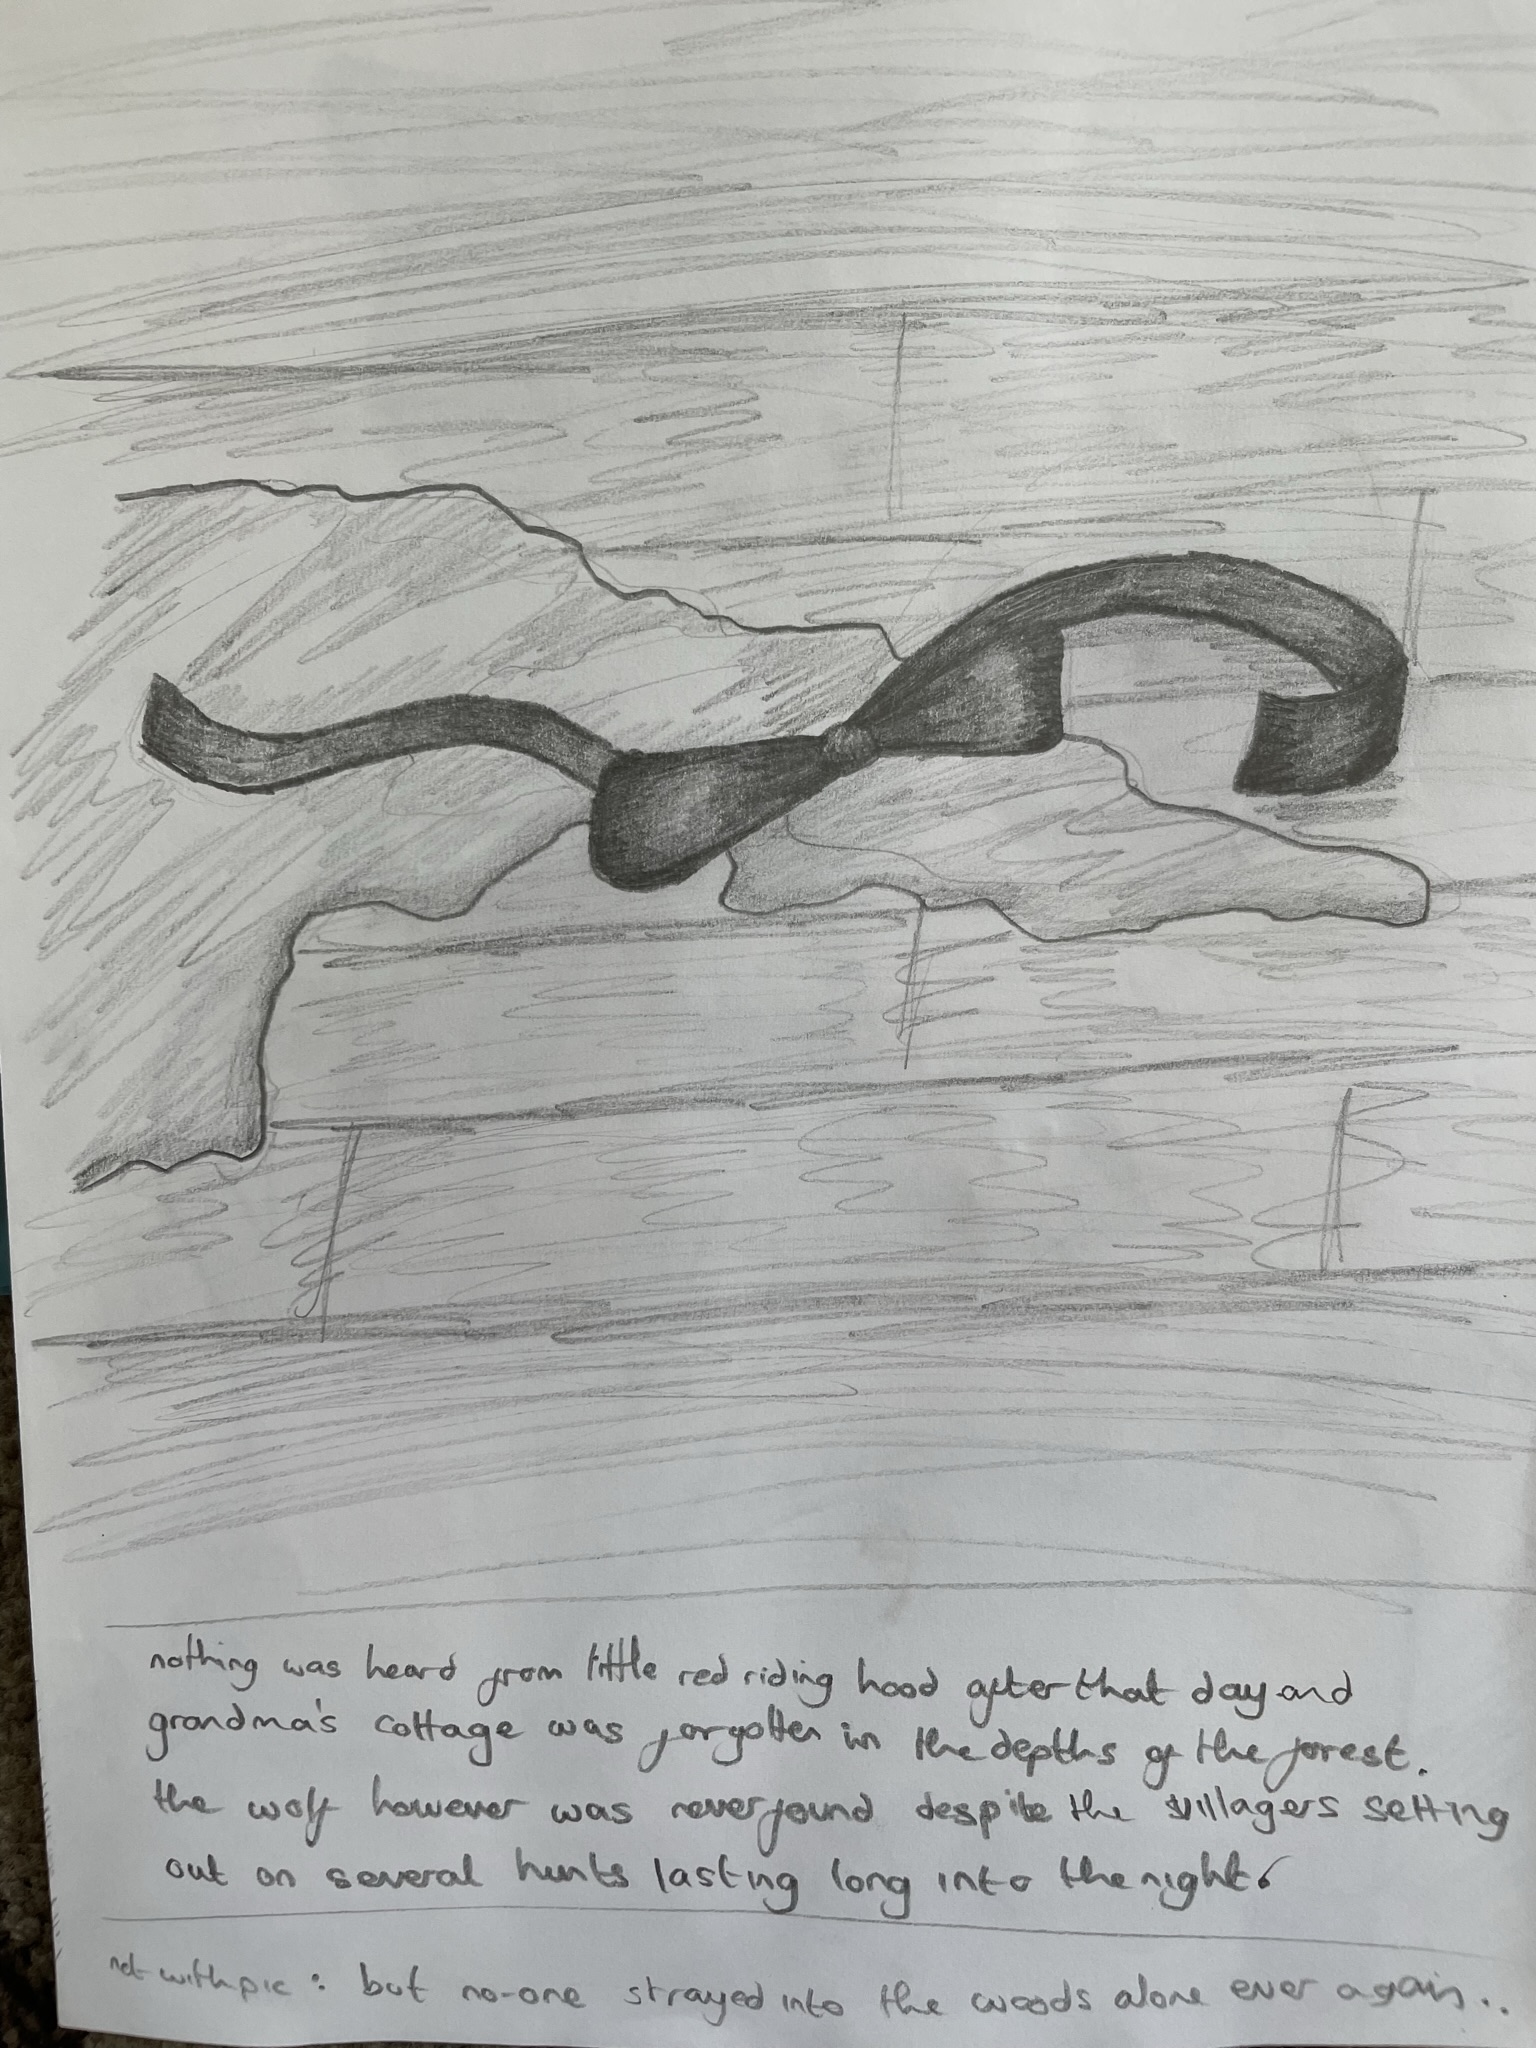 nothing was heard from little red riding hood after that day and
grandma's cottage was forgotten in the depths of the forest.
the wolf however was never found despite the villagers setting
out on several hunts lasting long into the night.
not with pic: but no-one strayed into the woods alone ever again..